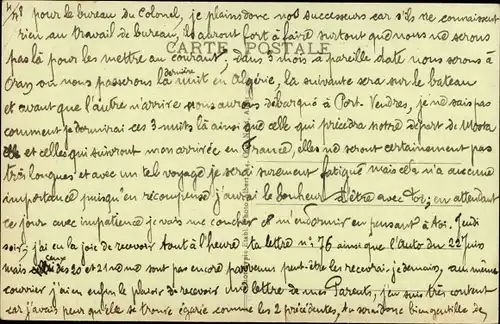 4/ pour le bureau du Colonel, je plains donc nos successeurs car s'ils ne connaissent
rien au travail de bureau, ils auront fort à faire surtout que nous ne serons
CARTE POSTALE
pas là pour les mettre au courant, dans 3 mois à pareille date nous serons à
Oran où nous passerons la dernière nuit en Algérie, la suivante sera sur le bateau
et avant que l'autre n'arrive nous aurons débarqué à Port-Vendres, je ne sais pas
comment je dormirai ces 3 nuits là ainsi que celle qui précédra notre départ de
et celles qui suivront mon arrivée en France, elles ne seront certainement pas
très longues et avec un tel voyage je serai surement fatigué mais cela n'a aucune
importance puisqu'en récompense j'aurai le bonheur d'être avec toi, en attendant
ce jour avec impatience je vais me coucher et m'endormir en pensant à toi. Jeudi
soir, j'ai eu la joie de recevoir tout à l'heure ta lettre n: 76 ainsi que l'Auto du 22 juis
mais ceux des 20 et 21 ne me sont pas encore parvenus peut-être les recevrai-je demain, au même
courrier j'ai eu enfin le plaisir de recevoir une lettre de mes Parents, j'en suis très content
car j'avais peur qu'elle se trouve égarée comme les 2 précédentes, bien gentilles de